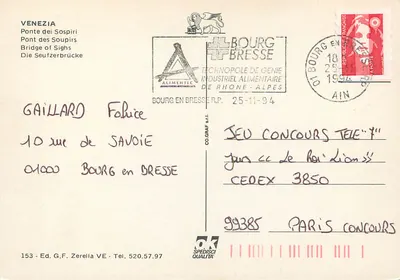 VENEZIA
Ponte dei Sospiri
Pont des Soupirs
Bridge of Sighs
Die Seufzerbrücke
ALIMENTEC
BOURG
BRESSE
TECHNOPOLE DE GENIE
INDUSTRIEL ALIMENTAIRE
DE RHONE-ALPES
BOURG EN BRESSE R.P. 25-11-94
01 BOURG EN
18
25-
1994
AIN
GAILLARD Fabrice
10 rue de SAVOIE
01000 BOURG en BRESSE
JEU CONCOURS TELE "7"
jeux << Le Roi Lion >>
CEDEX 3850
99385 PARIS CONCOURS
ok
SPEDISCI
QUALITA'
153 - Ed. G.F. Zerella VE - Tel. 520.57.97